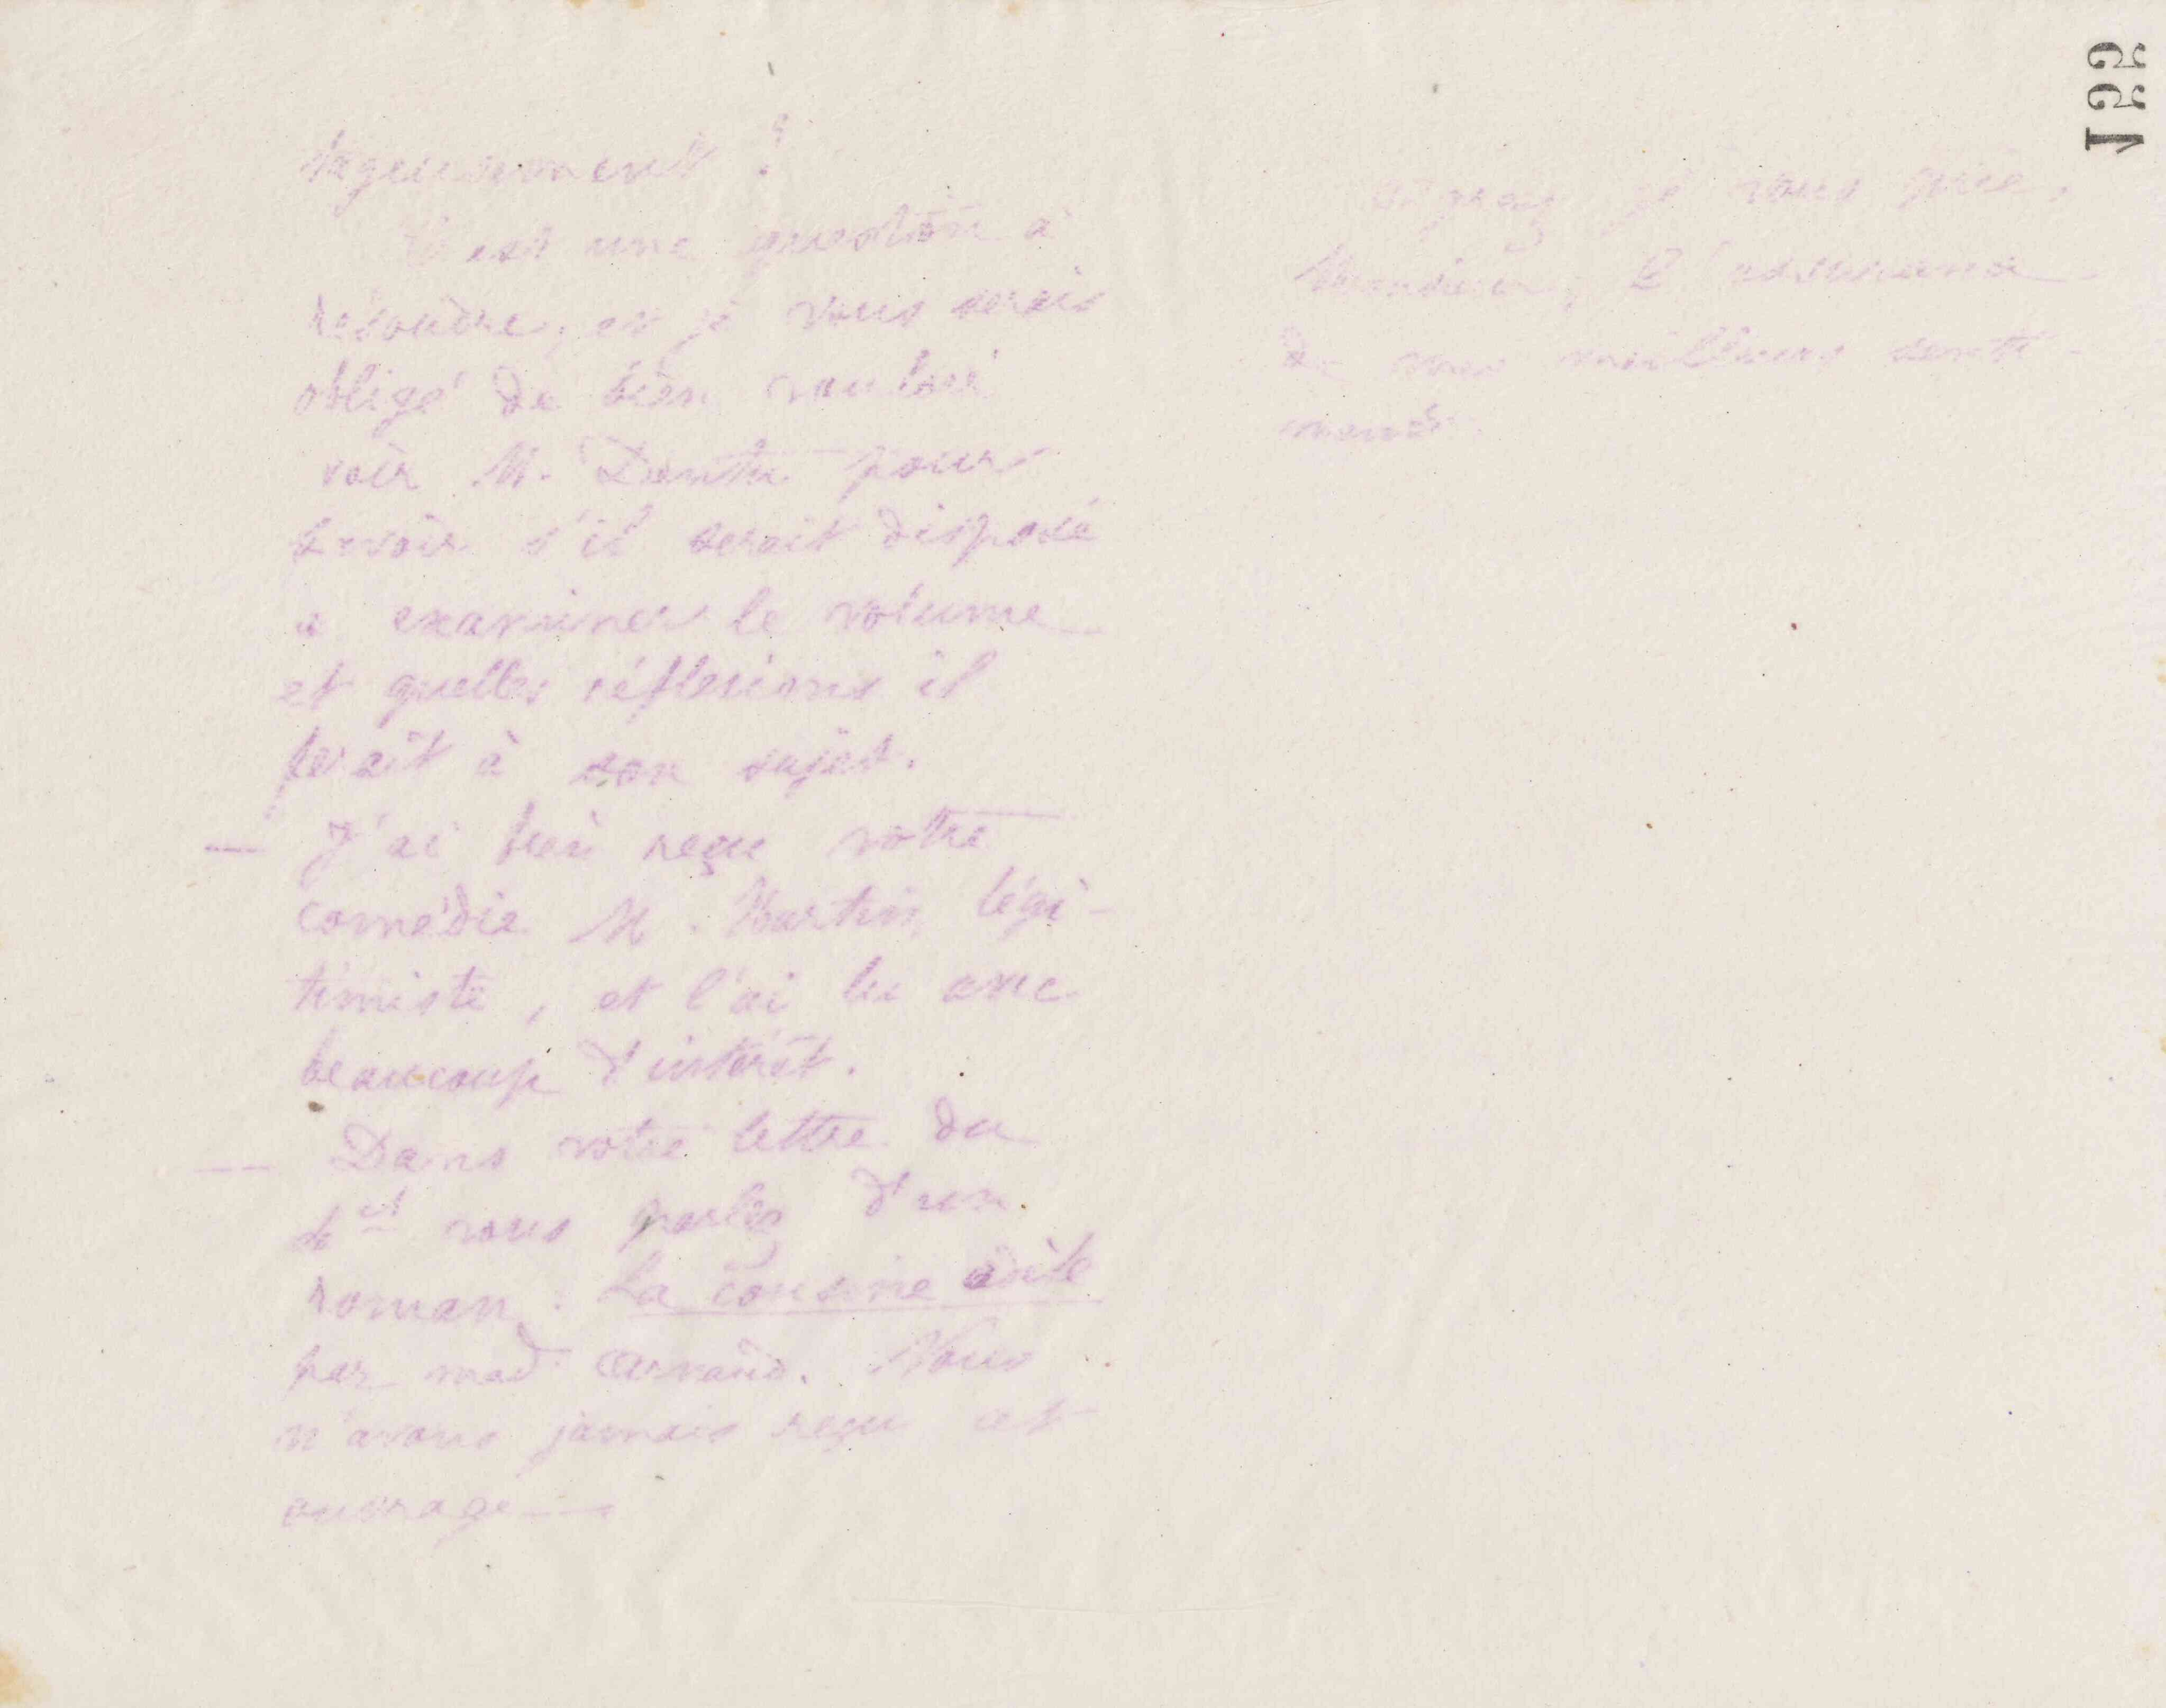 tageusement ?
C'est une question à
résoudre, et je vous serais
obligé de bien vouloir
voir M. Dentu pour
savoir s'il serait disposé
à examiner le volume
et quelles réflexions il
ferait à son sujet.
— J'ai bien reçu votre
comédie M. Martin légi-
timiste, et l'ai lu avec
beaucoup d'intérêt.
— Dans votre lettre du
vous parlez d'un
roman : La cousine
par mad Arnaud. Nous
n'avons jamais reçu cet
ouvrage —
Agréez je vous prie,
Monsieur, l'assurance
de mes meilleurs senti-
ments.
155